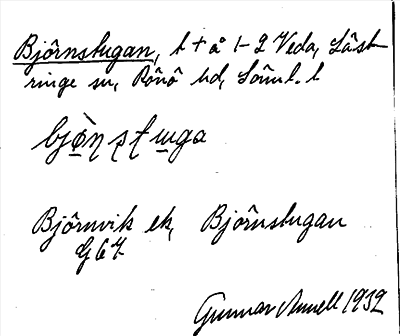 Björnstugan, t + å 1-2 Veda, Läst-
ringe sn, Rönö hd, Söml. l
bjö̀ṇṣṭɯga
Björnvik ek, Björnstugan
G 67
Gunnar Annell 1932